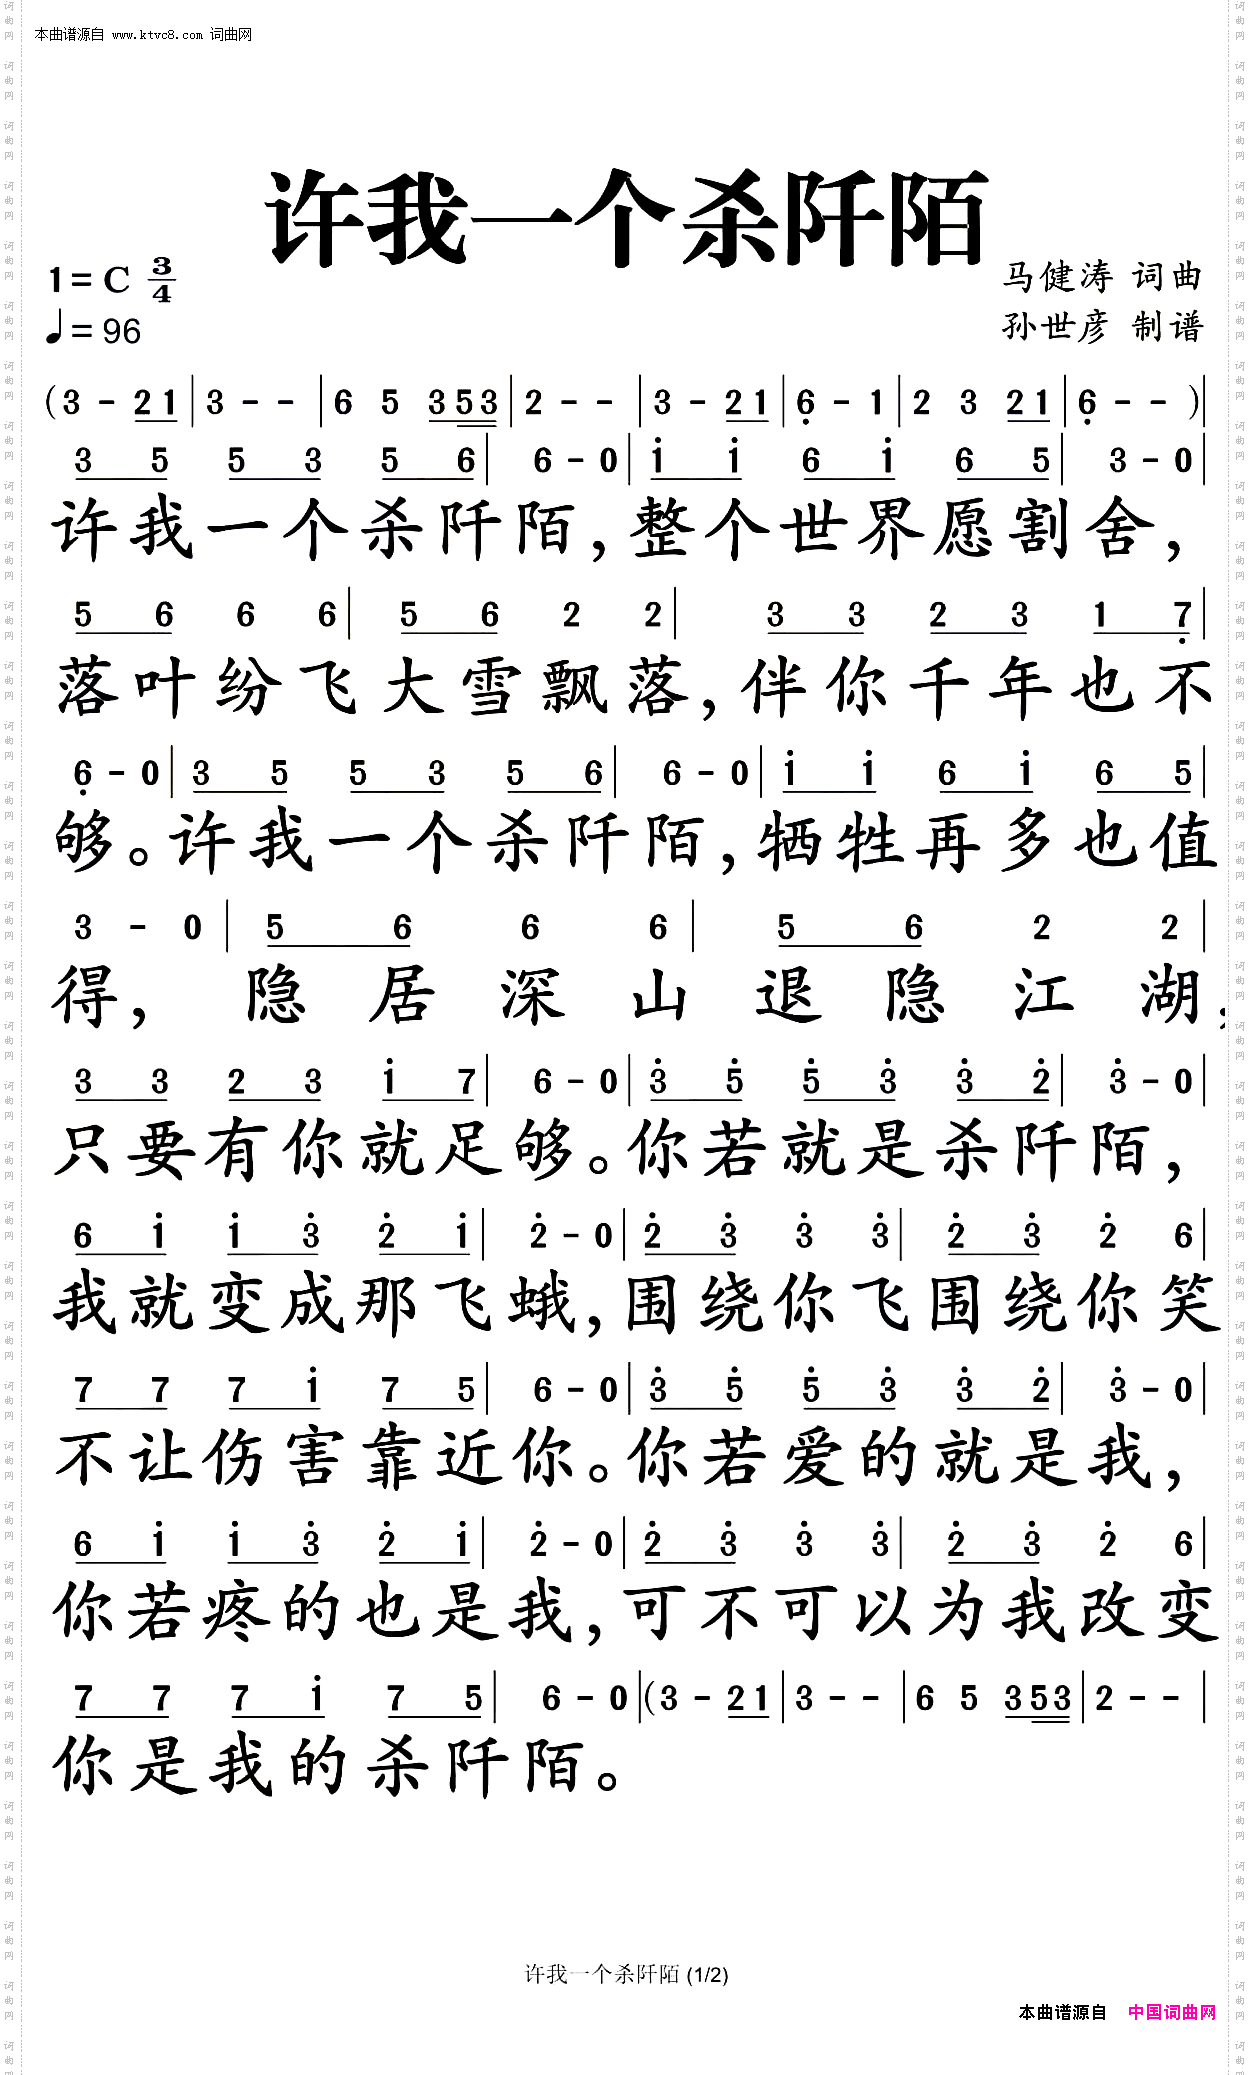 本曲谱源自 www.ktvc8.com 词曲网
许我一个杀阡陌
1=C 3/4
马健涛 词曲
♩=96
孙世彦 制谱
(3 - 21 | 3 - - | 6 5 353 | 2 - - | 3 - 21 | 6̣ - 1 | 2 3 21 | 6̣ - - )|
3 5 5 3 5 6 | 6 - 0 | i i 6 i 6 5 | 3 - 0 |
许我一个杀阡陌,整个世界愿割舍,
5 6 6 6 | 5 6 2 2 | 3 3 2 3 1 7̣ |
落叶纷飞大雪飘落,伴你千年也不
6̣ - 0 | 3 5 5 3 5 6 | 6 - 0 | i i 6 i 6 5 |
够。许我一个杀阡陌,牺牲再多也值
3 - 0 | 5 6 6 6 | 5 6 2 2 |
得,隐居深山退隐江湖,
3 3 2 3 i 7 | 6 - 0 | 3̇ 5̇ 5̇ 3̇ 3̇ 2̇ | 3̇ - 0 |
只要有你就足够。你若就是杀阡陌,
6 i i 3̇ 2̇ i | 2̇ - 0 | 2̇ 3̇ 3̇ 3̇ | 2̇ 3̇ 2̇ 6 |
我就变成那飞蛾,围绕你飞围绕你笑
7 7 7 i 7 5 | 6 - 0 | 3̇ 5̇ 5̇ 3̇ 3̇ 2̇ | 3̇ - 0 |
不让伤害靠近你。你若爱的就是我,
6 i i 3̇ 2̇ i | 2̇ - 0 | 2̇ 3̇ 3̇ 3̇ | 2̇ 3̇ 2̇ 6 |
你若疼的也是我,可不可以为我改变
7 7 7 i 7 5 | 6 - 0 |(3 - 21 | 3 - - | 6 5 353 | 2 - - |
你是我的杀阡陌。
许我一个杀阡陌 (1/2)
本曲谱源自 中国词曲网